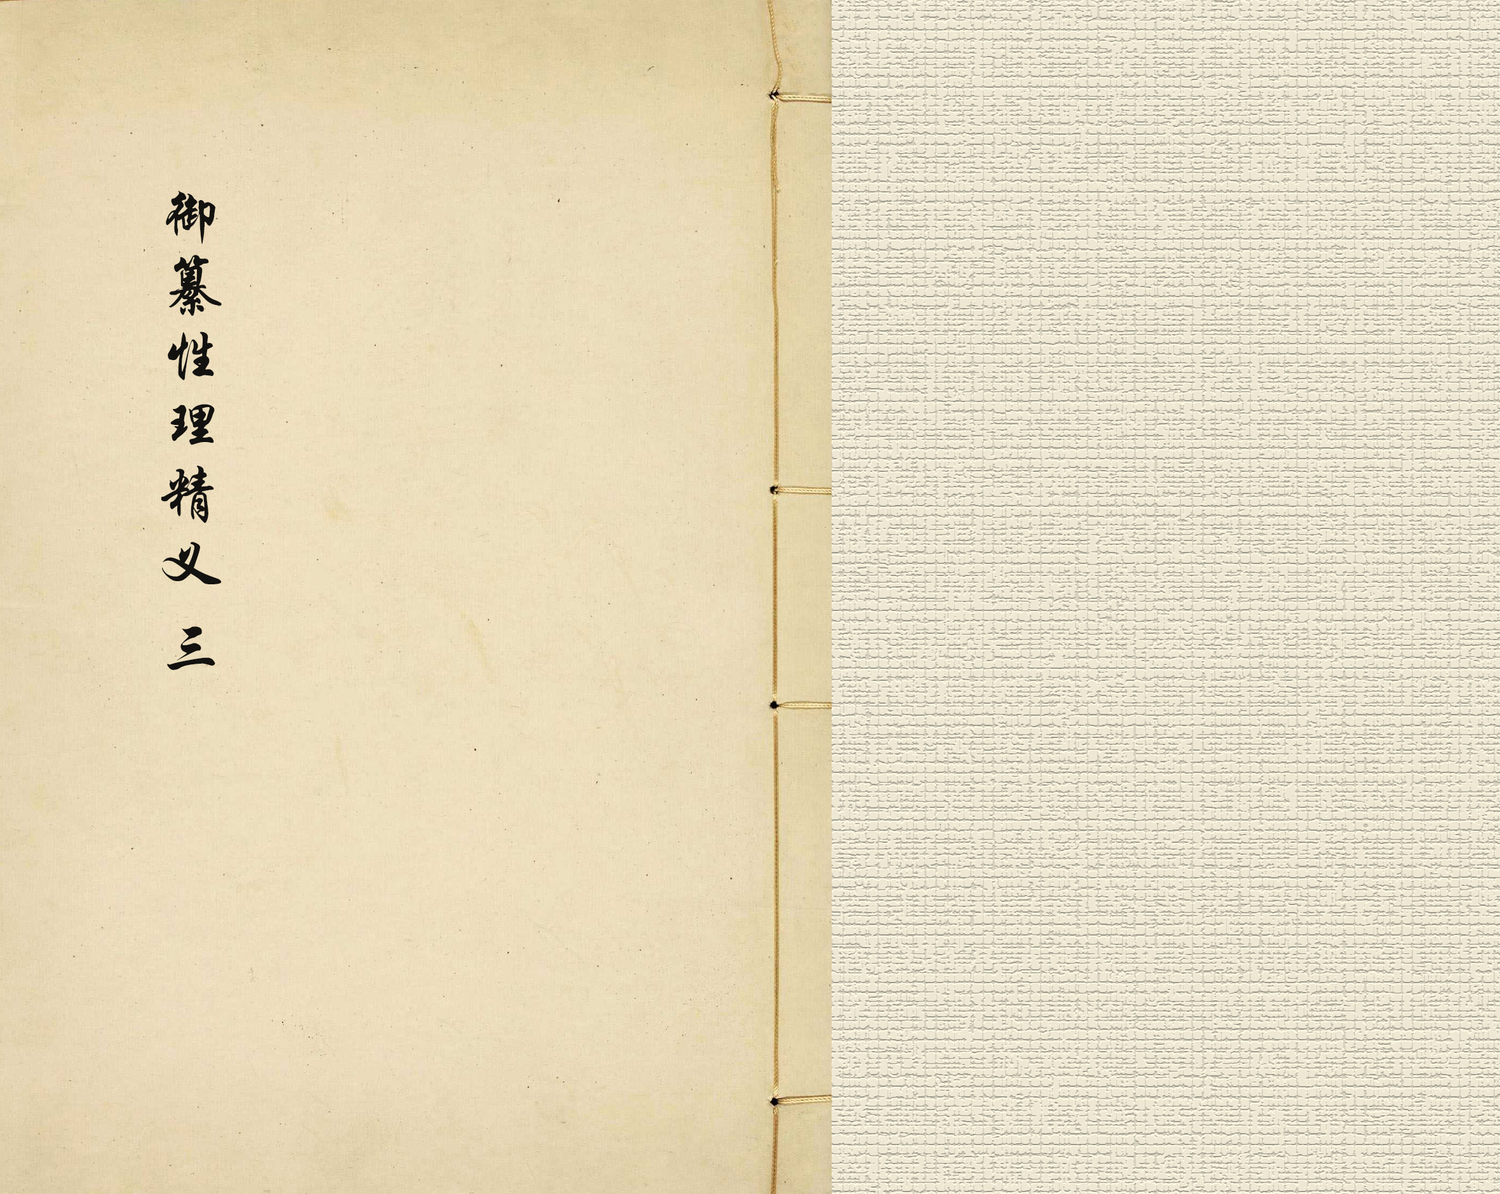 御纂性理精义 三